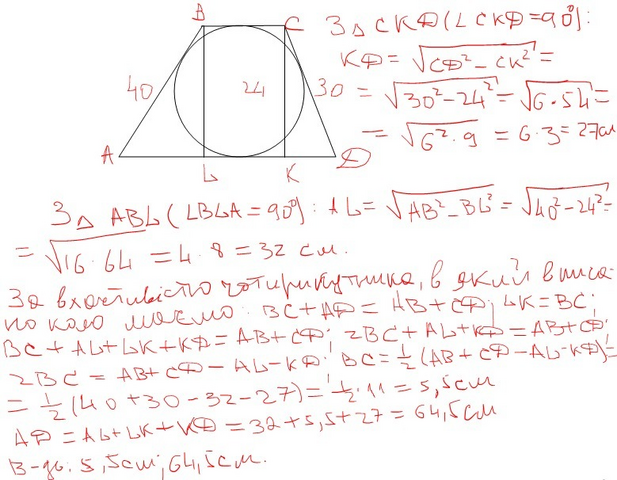 B C
40 24 30
A L K D
З Δ CKD (∠CKD = 90°):
KD = √(CD² - CK²) =
= √(30² - 24²) = √(6·54) =
= √(6²·9) = 6·3 = 27см
З Δ ABL (∠BLA = 90°): AL = √(AB² - BL²) = √(40² - 24²) =
= √(16·64) = 4·8 = 32 см.
За властивістю чотирикутника, в який вписа-
но коло маємо: BC + AD = AB + CD; LK = BC;
BC + AL + LK + KD = AB + CD; 2BC + AL + KD = AB + CD;
2BC = AB + CD - AL - KD; BC = ½(AB + CD - AL - KD) =
= ½(40 + 30 - 32 - 27) = ½·11 = 5,5см
AD = AL + LK + KD = 32 + 5,5 + 27 = 64,5см
В-дь: 5,5см; 64,5см.